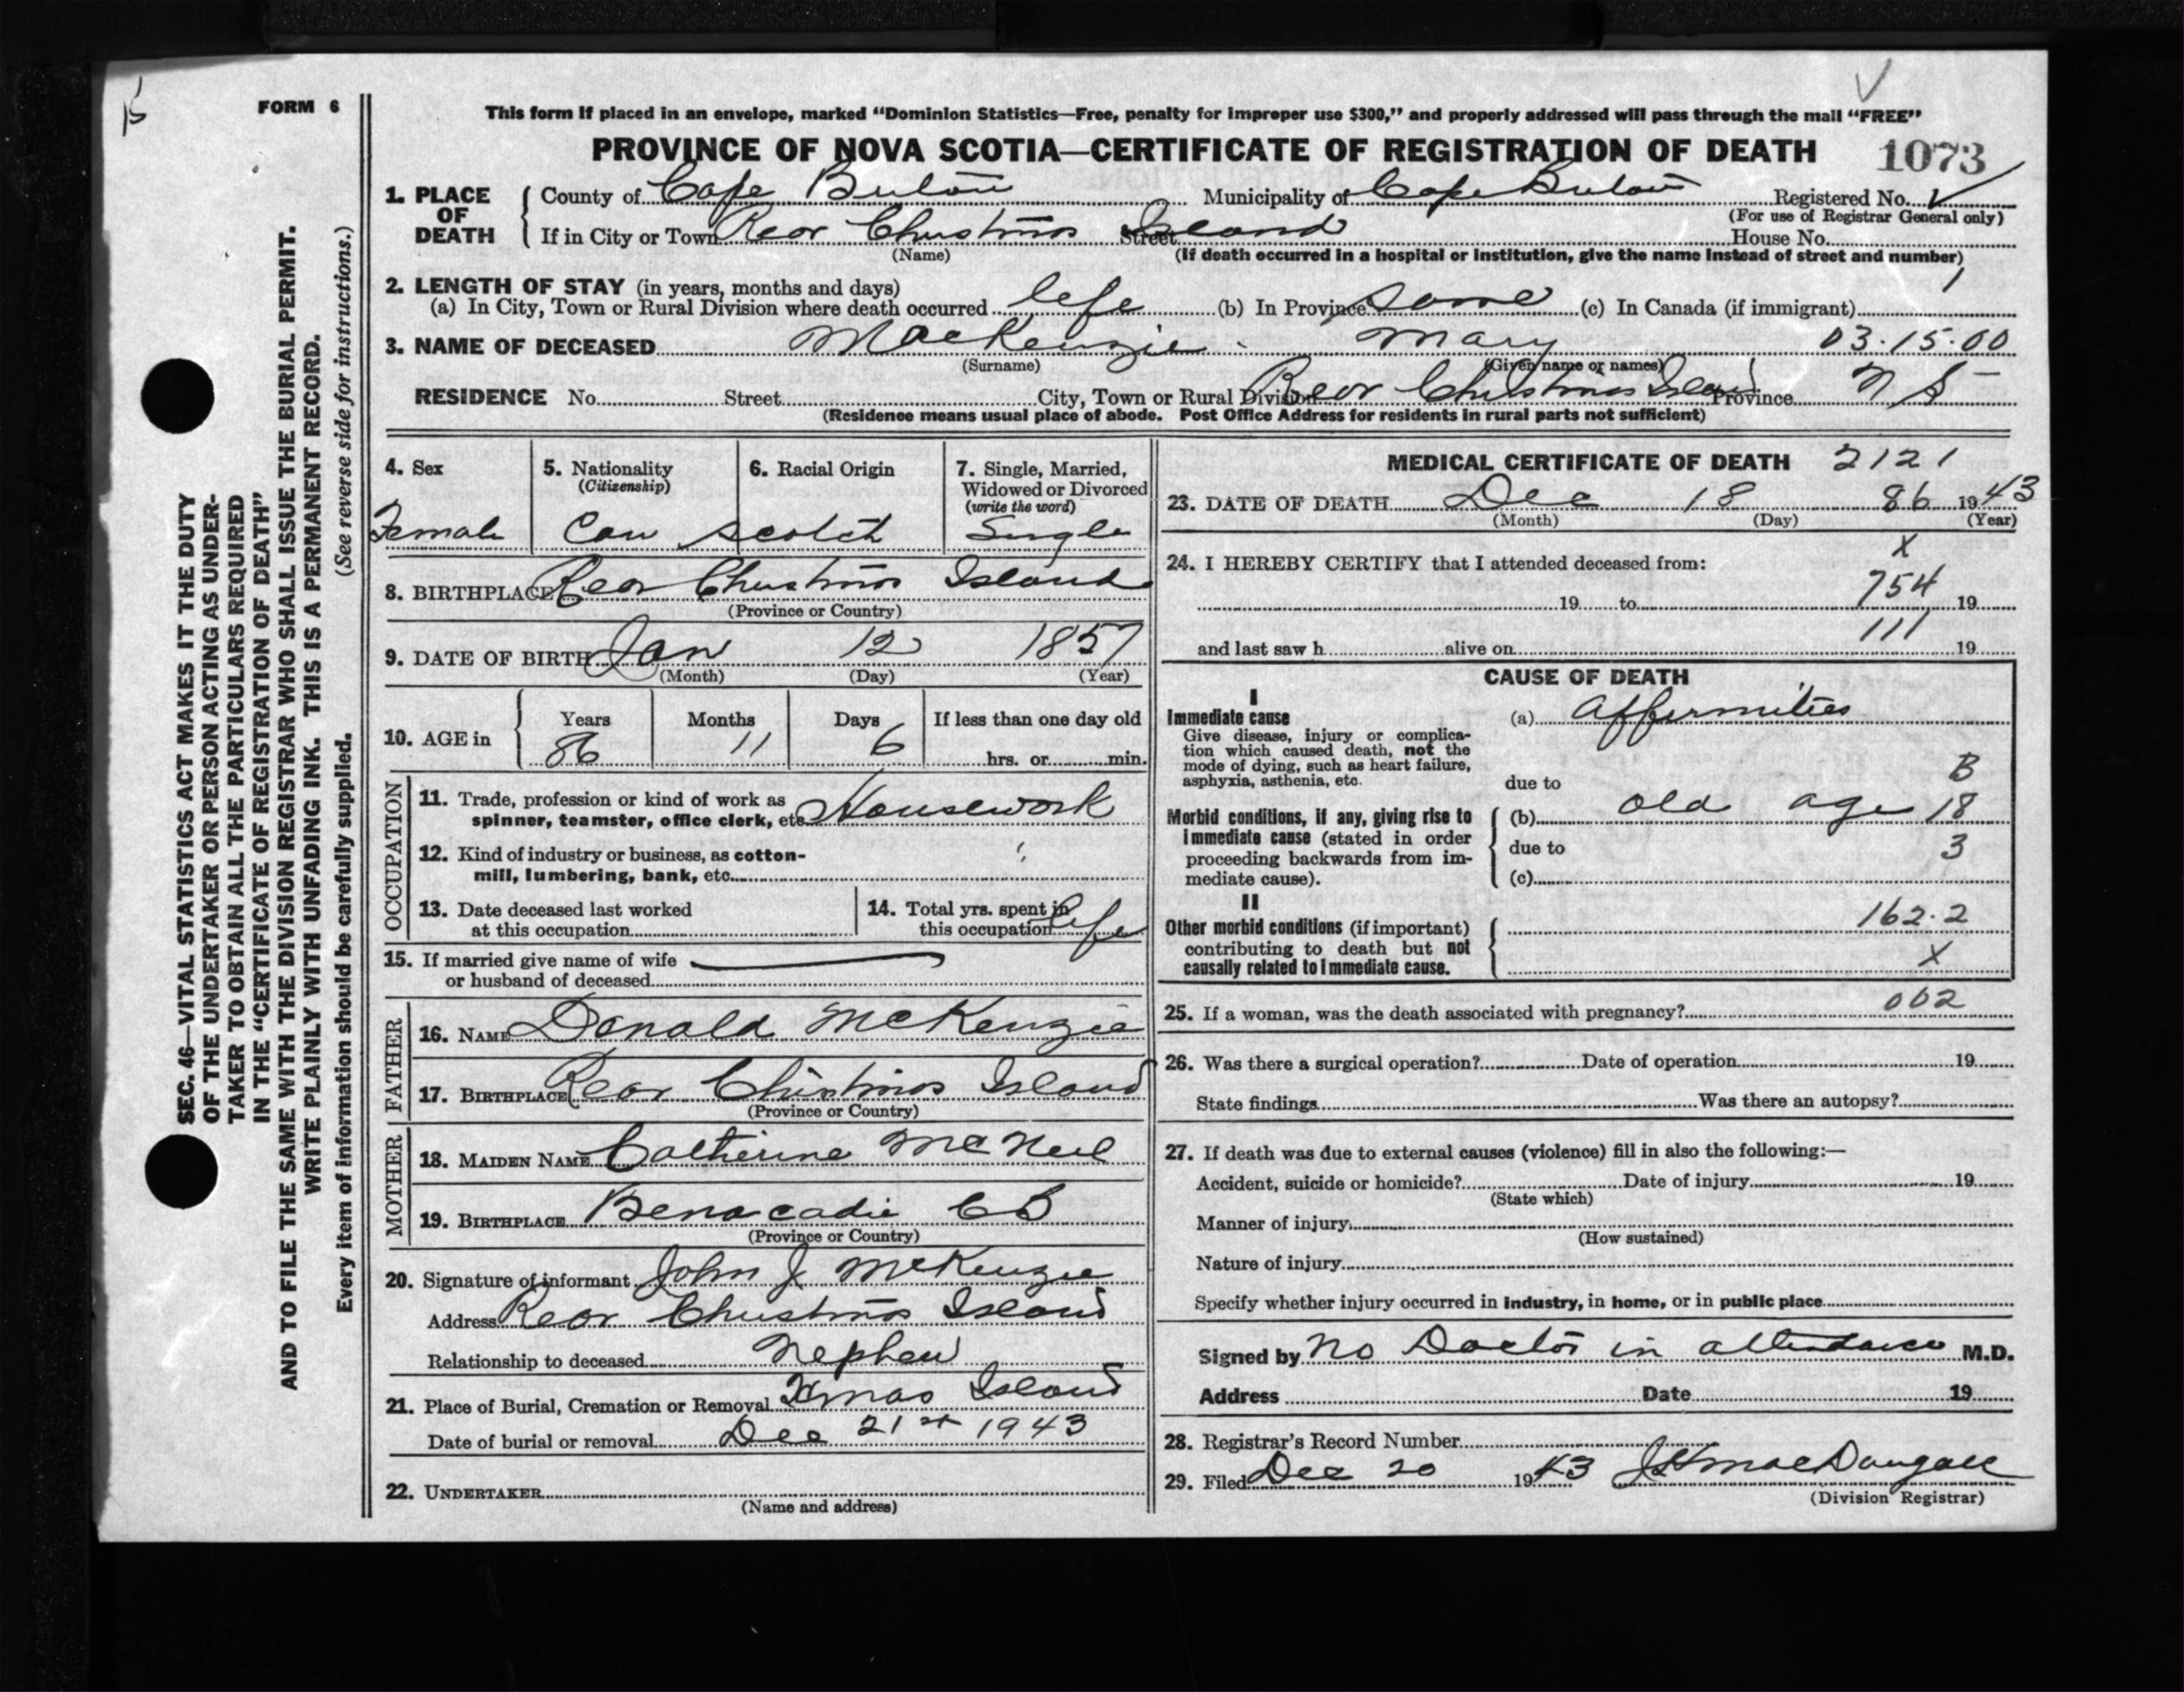 15
FORM 6
SEC. 46—VITAL STATISTICS ACT MAKES IT THE DUTY
OF THE UNDERTAKER OR PERSON ACTING AS UNDER-
TAKER TO OBTAIN ALL THE PARTICULARS REQUIRED
IN THE "CERTIFICATE OF REGISTRATION OF DEATH"
AND TO FILE THE SAME WITH THE DIVISION REGISTRAR WHO SHALL ISSUE THE BURIAL PERMIT.
WRITE PLAINLY WITH UNFADING INK. THIS IS A PERMANENT RECORD.
Every item of information should be carefully supplied. (See reverse side for instructions.)
This form if placed in an envelope, marked "Dominion Statistics—Free, penalty for improper use $300," and properly addressed will pass through the mail "FREE"
PROVINCE OF NOVA SCOTIA—CERTIFICATE OF REGISTRATION OF DEATH 1073
1. PLACE OF DEATH County of Cape Breton Municipality of Cape Breton Registered No.
(For use of Registrar General only)
If in City or Town Rear Christmas Island Street House No.
(Name) (If death occurred in a hospital or institution, give the name instead of street and number)
2. LENGTH OF STAY (in years, months and days) 1
(a) In City, Town or Rural Division where death occurred life (b) In Province same (c) In Canada (if immigrant)
3. NAME OF DECEASED MacKenzie Mary 03.15.00
(Surname) (Given name or names)
RESIDENCE No. Street City, Town or Rural Division Rear Christmas Island Province N S
(Residence means usual place of abode. Post Office Address for residents in rural parts not sufficient)
4. Sex Female
5. Nationality (Citizenship) Can
6. Racial Origin scotch
7. Single, Married, Widowed or Divorced (write the word) Single
8. BIRTHPLACE Rear Christmas Island
(Province or Country)
9. DATE OF BIRTH Jan 12 1857
(Month) (Day) (Year)
10. AGE in Years Months Days If less than one day old
86 11 6 hrs. or min.
OCCUPATION
11. Trade, profession or kind of work as
spinner, teamster, office clerk, etc. Housework
12. Kind of industry or business, as cotton-
mill, lumbering, bank, etc.
13. Date deceased last worked
at this occupation
14. Total yrs. spent in
this occupation life
15. If married give name of wife
or husband of deceased
FATHER
16. NAME Donald McKenzie
17. BIRTHPLACE Rear Christmas Island
(Province or Country)
MOTHER
18. MAIDEN NAME Catherine McNeil
19. BIRTHPLACE Benacadie C B
(Province or Country)
20. Signature of informant John J McKenzie
Address Rear Christmas Island
Relationship to deceased Nephew
21. Place of Burial, Cremation or Removal Xmas Island
Date of burial or removal Dec 21st 1943
22. UNDERTAKER
(Name and address)
MEDICAL CERTIFICATE OF DEATH 2121
23. DATE OF DEATH Dec 18 86 1943
(Month) (Day) (Year)
24. I HEREBY CERTIFY that I attended deceased from: X
19 to 754 19
and last saw h alive on 111 19
CAUSE OF DEATH
I
Immediate cause
Give disease, injury or complica-
tion which caused death, not the
mode of dying, such as heart failure,
asphyxia, asthenia, etc.
(a) affirmities
due to B
Morbid conditions, if any, giving rise to
immediate cause (stated in order
proceeding backwards from im-
mediate cause).
(b) old age 18
due to 3
(c)
II
Other morbid conditions (if important)
contributing to death but not
causally related to immediate cause.
162.2
X
25. If a woman, was the death associated with pregnancy? 002
26. Was there a surgical operation? Date of operation 19
State findings Was there an autopsy?
27. If death was due to external causes (violence) fill in also the following:—
Accident, suicide or homicide? Date of injury 19
(State which)
Manner of injury
(How sustained)
Nature of injury
Specify whether injury occurred in industry, in home, or in public place
Signed by No Doctor in attendance M.D.
Address Date 19
28. Registrar's Record Number
29. Filed Dec 20 1943 MacDougall
(Division Registrar)